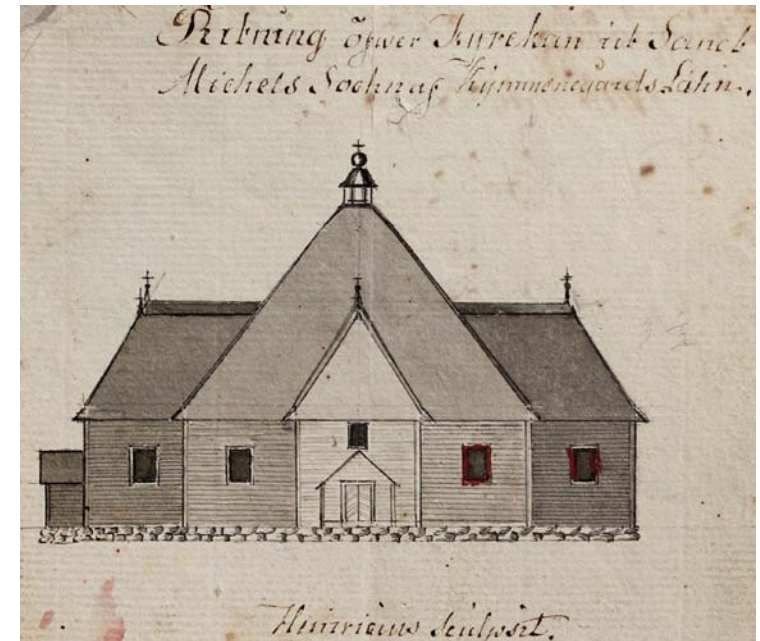 Ritning öfwer Kyrckan uti Sanct
Michels Sochn af Kymmenegårds Lähn.
sculpsit.